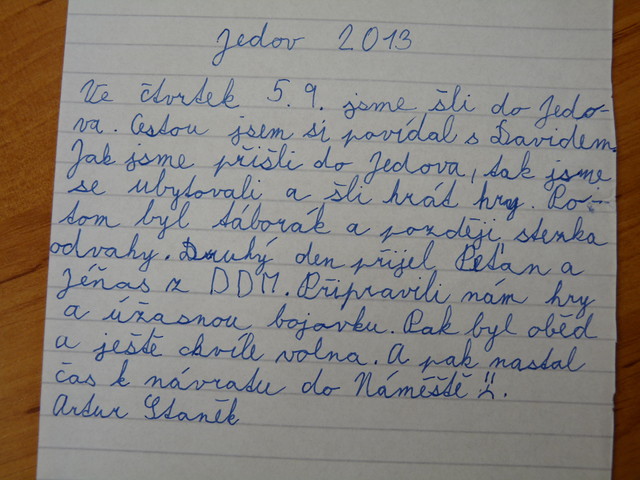 Jedov 2013
Ve čtvrtek 5. 9. jsme šli do Jedo-
va. Cestou jsem si povídal s Davidem.
Jak jsme přišli do Jedova, tak jsme
se ubytovali a šli hrát hry. Po-
tom byl táborák a později stezka
odvahy. Druhý den přijel Peťan a
Jéňas z DDM. Připravili nám hry
a úžasnou bojovku. Pak byl oběd
a ještě chvíle volna. A pak nastal
čas k návratu do Náměště.
Artur Staněk